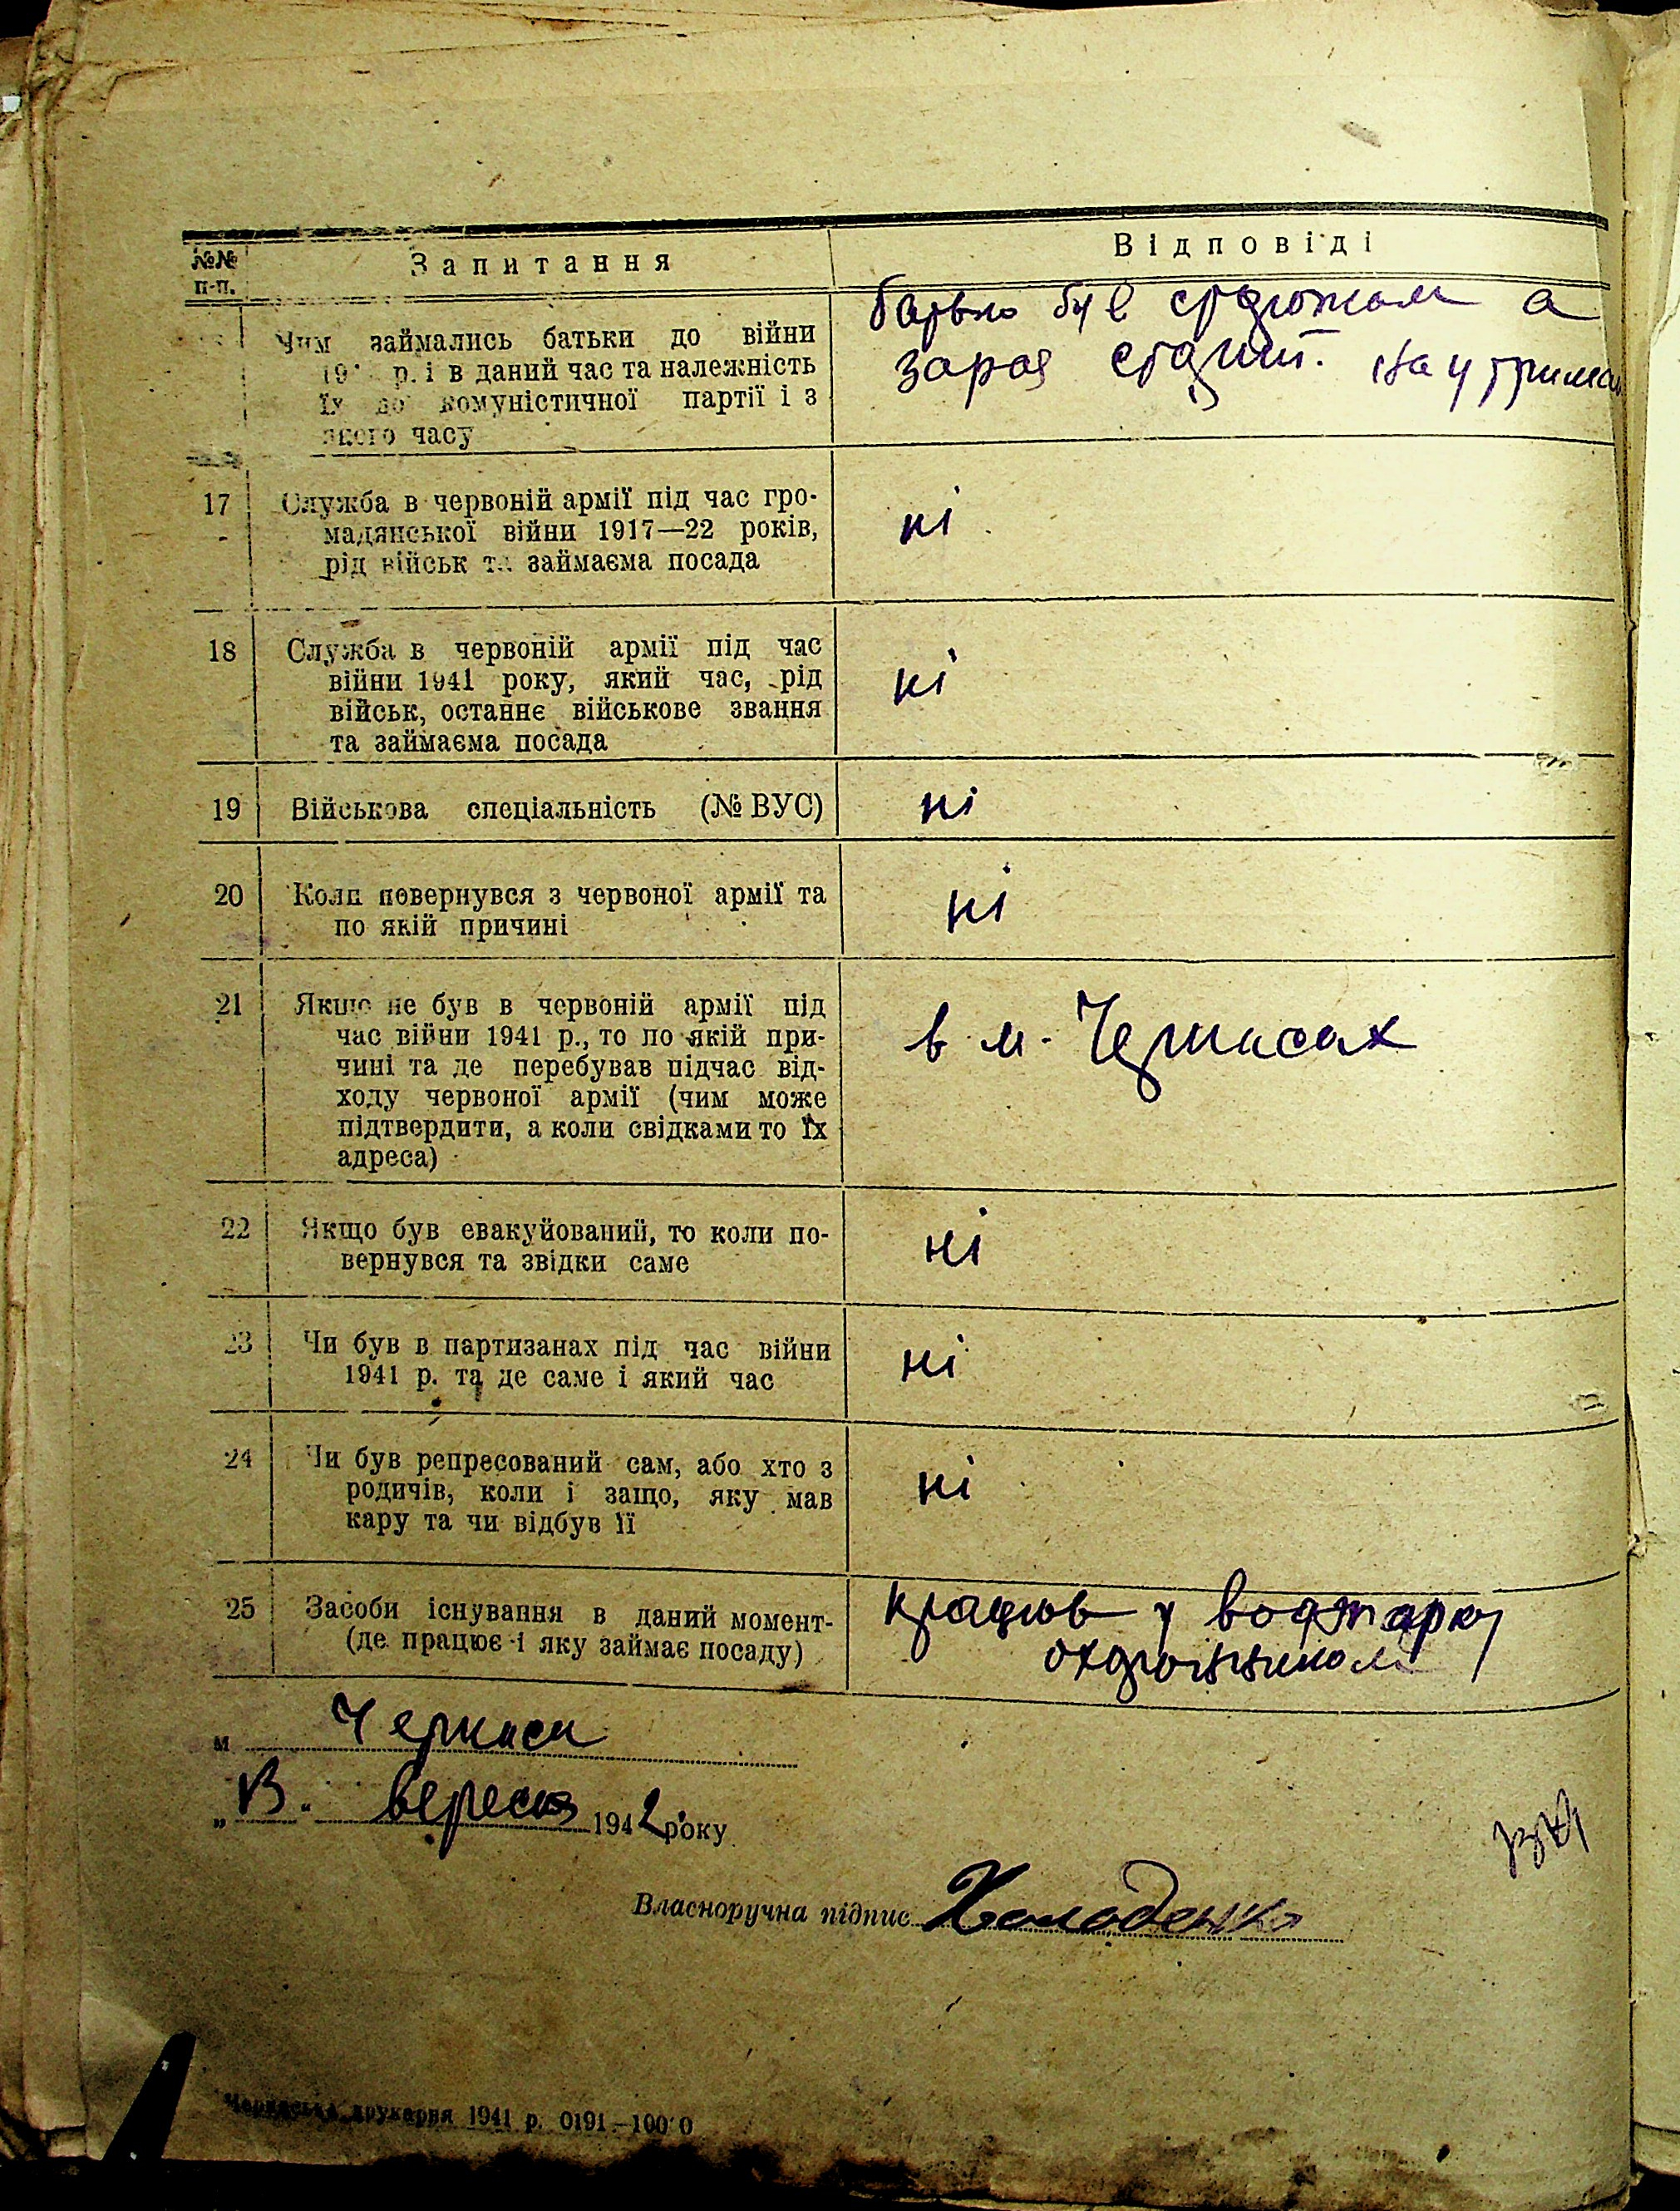 №№ п-п.
Запитання
Відповіді
Чим займались батьки до війни
р. і в даний час та належність
їх до комуністичної партії і з
якого часу
батько був сторожом а
зараз старий. На утриман
17
Служба в червоній армії під час гро-
мадянської війни 1917—22 років,
рід військ та займаєма посада
ні
18
Служба в червоній армії під час
війни 1941 року, який час, рід
військ, останнє військове звання
та займаєма посада
ні
19
Військова спеціальність (№ ВУС)
ні
20
Коли повернувся з червоної армії та
по якій причині
ні
21
Якщо не був в червоній армії під
час війни 1941 р., то по якій при-
чині та де перебував підчас від-
ходу червоної армії (чим може
підтвердити, а коли свідками то їх
адреса)
в м. Черкасах
22
Якщо був евакуйований, то коли по-
вернувся та звідки саме
ні
23
Чи був в партизанах під час війни
1941 р. та де саме і який час
ні
24
Чи був репресований сам, або хто з
родичів, коли і защо, яку мав
кару та чи відбув її
ні
25
Засоби існування в даний момент-
(де працює і яку займає посаду)
працюв у
охоронником
м Черкаси
вересня 1942 року
Власноручна підпис Холоденко
Черкаська друкарня 1941 р. 0191—100 0